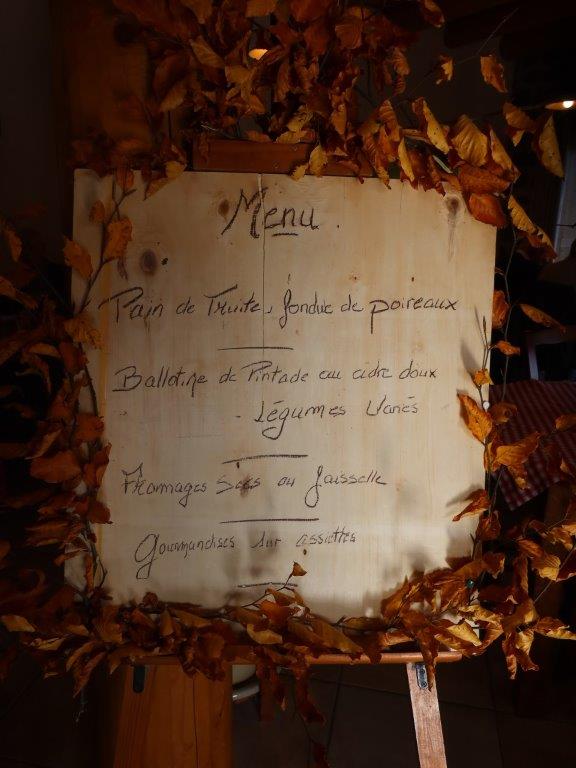 Menu.
Pain de Truite, fondue de poireaux
Ballotine de Pintade au cidre doux
- Légumes Variés
Fromages Secs ou faisselle
Gourmandises sur assiettes